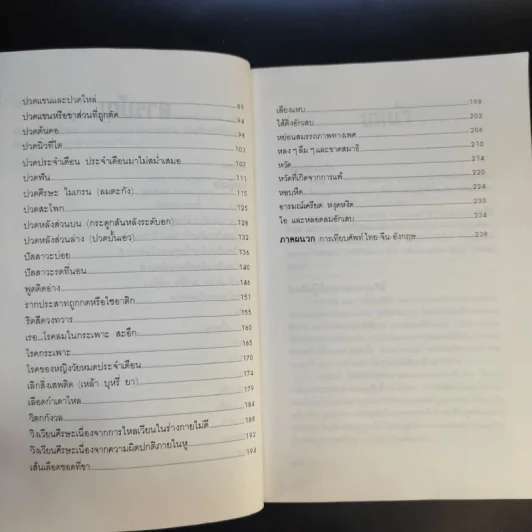 ปวดแขนและปวดไหล่ 89
ปวดแขนหรือขาส่วนที่ถูกตัด 94
ปวดต้นคอ 98
ปวดนิ้วที่โต 102
ปวดประจำเดือน ประจำเดือนมาไม่สม่ำเสมอ 107
ปวดฟัน 111
ปวดศีรษะ ไมเกรน (ลมตะกัง) 115
ปวดสะโพก 124
ปวดหลังส่วนบน (กระดูกสันหลังระดับอก) 128
ปวดหลังส่วนล่าง (ปวดบั้นเอว) 132
ปัสสาวะบ่อย 136
ปัสสาวะรดที่นอน 140
พูดติดอ่าง 146
รากประสาทถูกกดหรือไซอาติก 151
ริดสีดวงทวาร 155
เรอ...โรคลมในกระเพาะ สะอึก 160
โรคกระเพาะ 165
โรคของหญิงวัยหมดประจำเดือน 170
เลิกสิ่งเสพติด (เหล้า บุหรี่ ยา) 174
เลือดกำเดาไหล 179
วิตกกังวล 184
วิงเวียนศีรษะเนื่องจากการไหลเวียนในร่างกายไม่ดี 188
วิงเวียนศีรษะเนื่องจากความผิดปกติภายในหู 192
เส้นเลือดขอดที่ขา 194
เสียงแหบ 198
ไส้ติ่งอักเสบ 202
หย่อนสมรรถภาพทางเพศ 206
หลง ๆ ลืม ๆ และขาดสมาธิ 210
หวัด 214
หวัดที่เกิดจากการแพ้ 220
หอบหืด 224
อารมณ์เครียด หงุดหงิด 230
ไอ และหลอดลมอักเสบ 234
ภาคผนวก การเทียบศัพท์ ไทย จีน-อังกฤษ 239